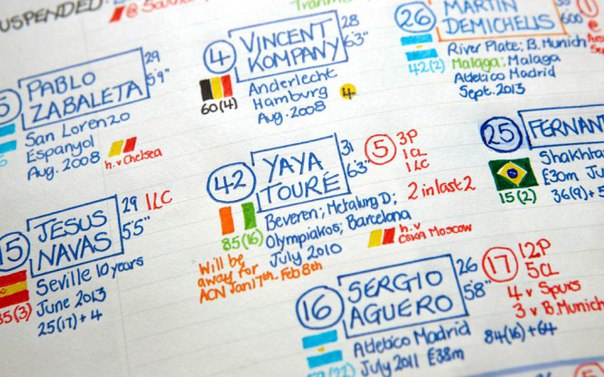 SUSPENDED:
PABLO
ZABALETA
29
5'9"
San Lorenzo
Espanyol
Aug. 2008
h.v Chelsea
4
VINCENT
KOMPANY
28
6'3"
60(4)
Anderlecht
Hamburg
Aug. 2008
4
26
MARTIN
DEMICHELIS
42(2)
River Plate; B.Munich
Malaga; Malaga
Atletico Madrid
Sept. 2013
15
JESUS
NAVAS
29
5'5"
1LC
35(3)
Seville 10 years
June 2013
25(17)+4
42
YAYA
TOURÉ
31
6'3"
5
3P
1CL
1LC
2 in last 2
85(16)
Beveren; Metalurg D;
Olympiakos; Barcelona
July 2010
h.v
CSKA Moscow
Will be
away for
ACN Jan 17th-Feb 8th
25
FERNAN
15(2)
Shakhta
€30m Ju
36(9)+5
16
SERGIO
AGUERO
26
5'8"
17
12P
5CL
4 v Spurs
3 v B.Munich
Atletico Madrid
July 2011 £38m
84(16)+64